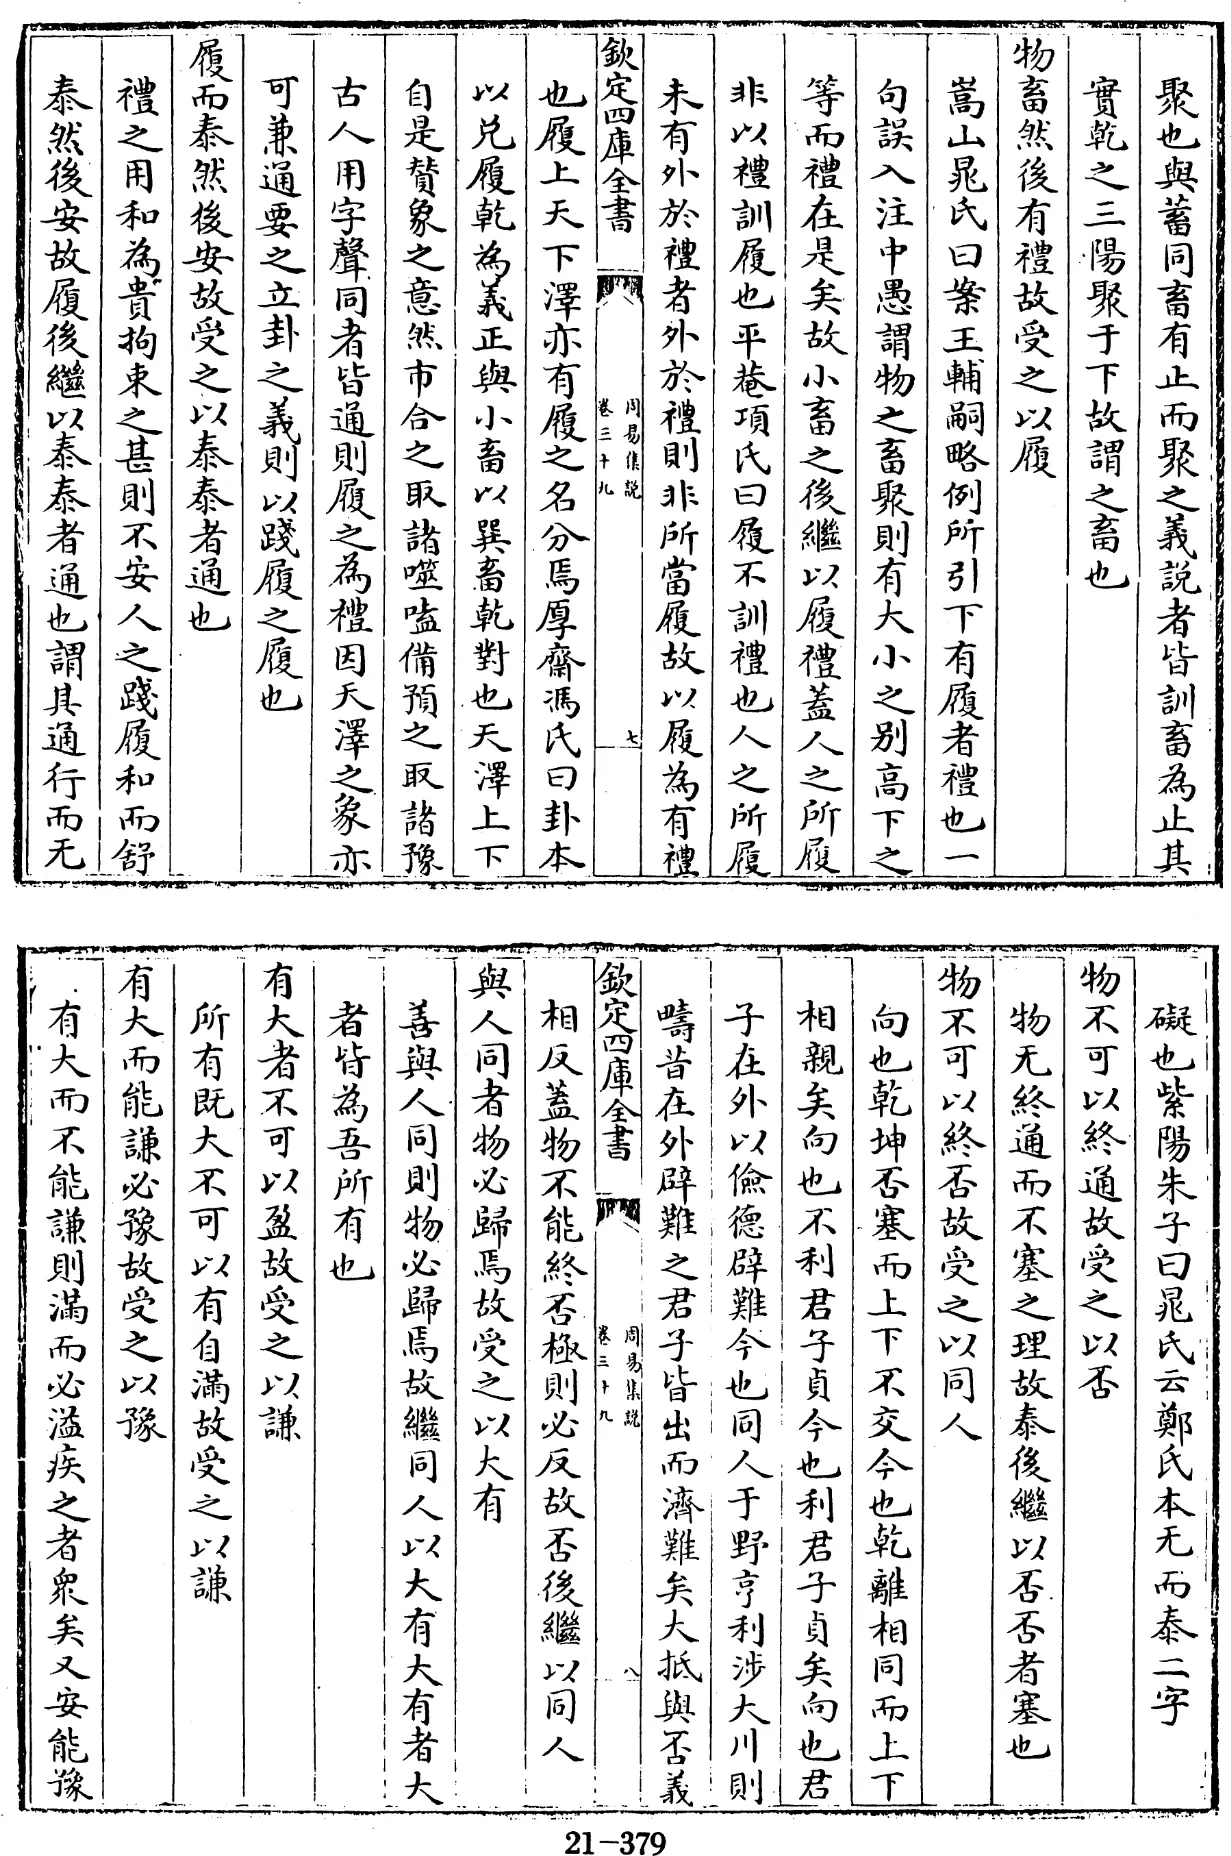 聚也與蓄同畜有止而聚之義說者皆訓畜為止其
實乾之三陽聚于下故謂之畜也
物畜然後有禮故受之以履
嵩山晁氏曰案王輔嗣略例所引下有履者禮也一
句誤入注中愚謂物之畜聚則有大小之別高下之
等而禮在是矣故小畜之後繼以履禮蓋人之所履
非以禮訓履也平菴項氏曰履不訓禮也人之所履
未有外於禮者外於禮則非所當履故以履為有禮
欽定四庫全書
周易集說
卷三十九
七
也履上天下澤亦有履之名分焉厚齋馮氏曰卦本
以兌履乾為義正與小畜以巽畜乾對也天澤上下
自是贊象之意然市合之取諸噬嗑備預之取諸豫
古人用字聲同者皆通則履之為禮因天澤之象亦
可兼通要之立卦之義則以踐履之履也
履而泰然後安故受之以泰泰者通也
禮之用和為貴拘束之甚則不安人之踐履和而舒
泰然後安故履後繼以泰泰者通也謂具通行而无
礙也紫陽朱子曰晁氏云鄭氏本无而泰二字
物不可以終通故受之以否
物无終通而不塞之理故泰後繼以否否者塞也
物不可以終否故受之以同人
向也乾坤否塞而上下不交今也乾離相同而上下
相親矣向也不利君子貞今也利君子貞矣向也君
子在外以儉德辟難今也同人于野亨利涉大川則
疇昔在外辟難之君子皆出而濟難矣大抵與否義
欽定四庫全書
周易集說
卷三十九
八
相反蓋物不能終否極則必反故否後繼以同人
與人同者物必歸焉故受之以大有
善與人同則物必歸焉故繼同人以大有大有者大
者皆為吾所有也
有大者不可以盈故受之以謙
所有既大不可以有自滿故受之以謙
有大而能謙必豫故受之以豫
有大而不能謙則滿而必溢疾之者衆矣又安能豫
21-379